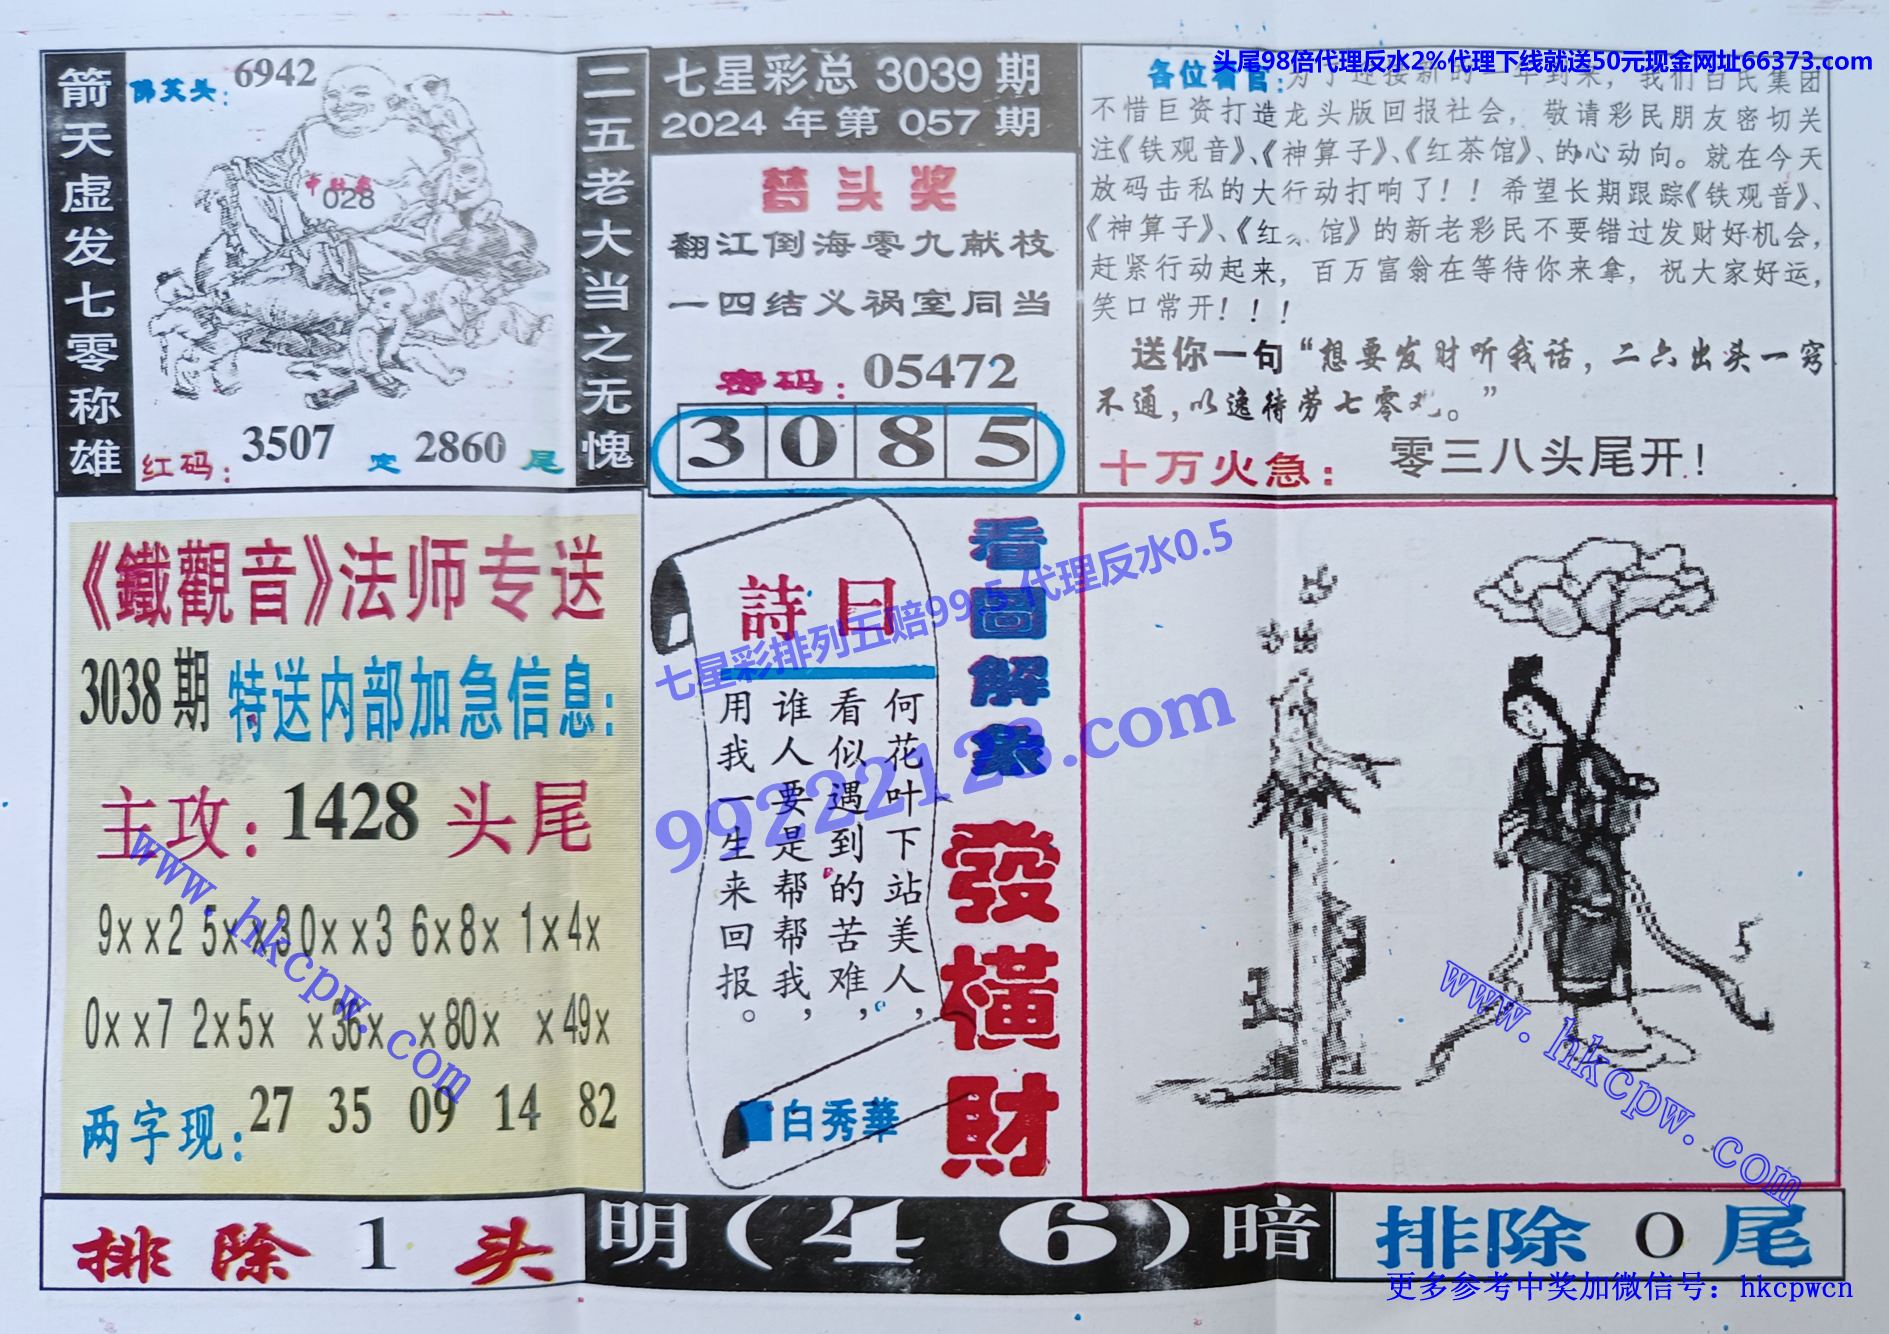 头尾98倍代理反水2%代理下线就送50元现金网址66373.com
箭天虚发七零称雄
6942
028
红码:
3507
定
2860
尾
二五老大当之无愧
七星彩总 3039 期
2024 年第 057 期
头奖
翻江倒海零九献枝
一四结义祸室同当
密码:
05472
3 0 8 5
各位看官:为了迎接新的一年到来，我们百氏集团
不惜巨资打造龙头版回报社会，敬请彩民朋友密切关
注《铁观音》、《神算子》、《红茶馆》、的心动向。就在今天
放码击私的大行动打响了！！希望长期跟踪《铁观音》、
《神算子》、《红 馆》的新老彩民不要错过发财好机会，
赶紧行动起来，百万富翁在等待你来拿，祝大家好运，
笑口常开！！！
送你一句“想要发财听我话，二六出头一窍
不通，以逸待劳七零 。”
十万火急:
零三八头尾开!
《鐵觀音》法师专送
3038 期
特送内部加急信息:
主攻:
1428
头尾
9xx2 5xx3 0xx3 6x8x 1x4x
0xx7 2x5x x36x x80x x49x
两字现:
27 35 09 14 82
詩曰
何花叶下站美人，
看似遇到的苦难，
谁人要是帮帮我，
用我一生来回报。
白秀華
看圖解象
發橫財
七星彩排列五赔99.5 代理反水0.5
99222123.com
www.hkcpw.com
www.hkcpw.com
排除 1 头
明(4 6)暗
排除 0 尾
更多参考中奖加微信号: hkcpwcn